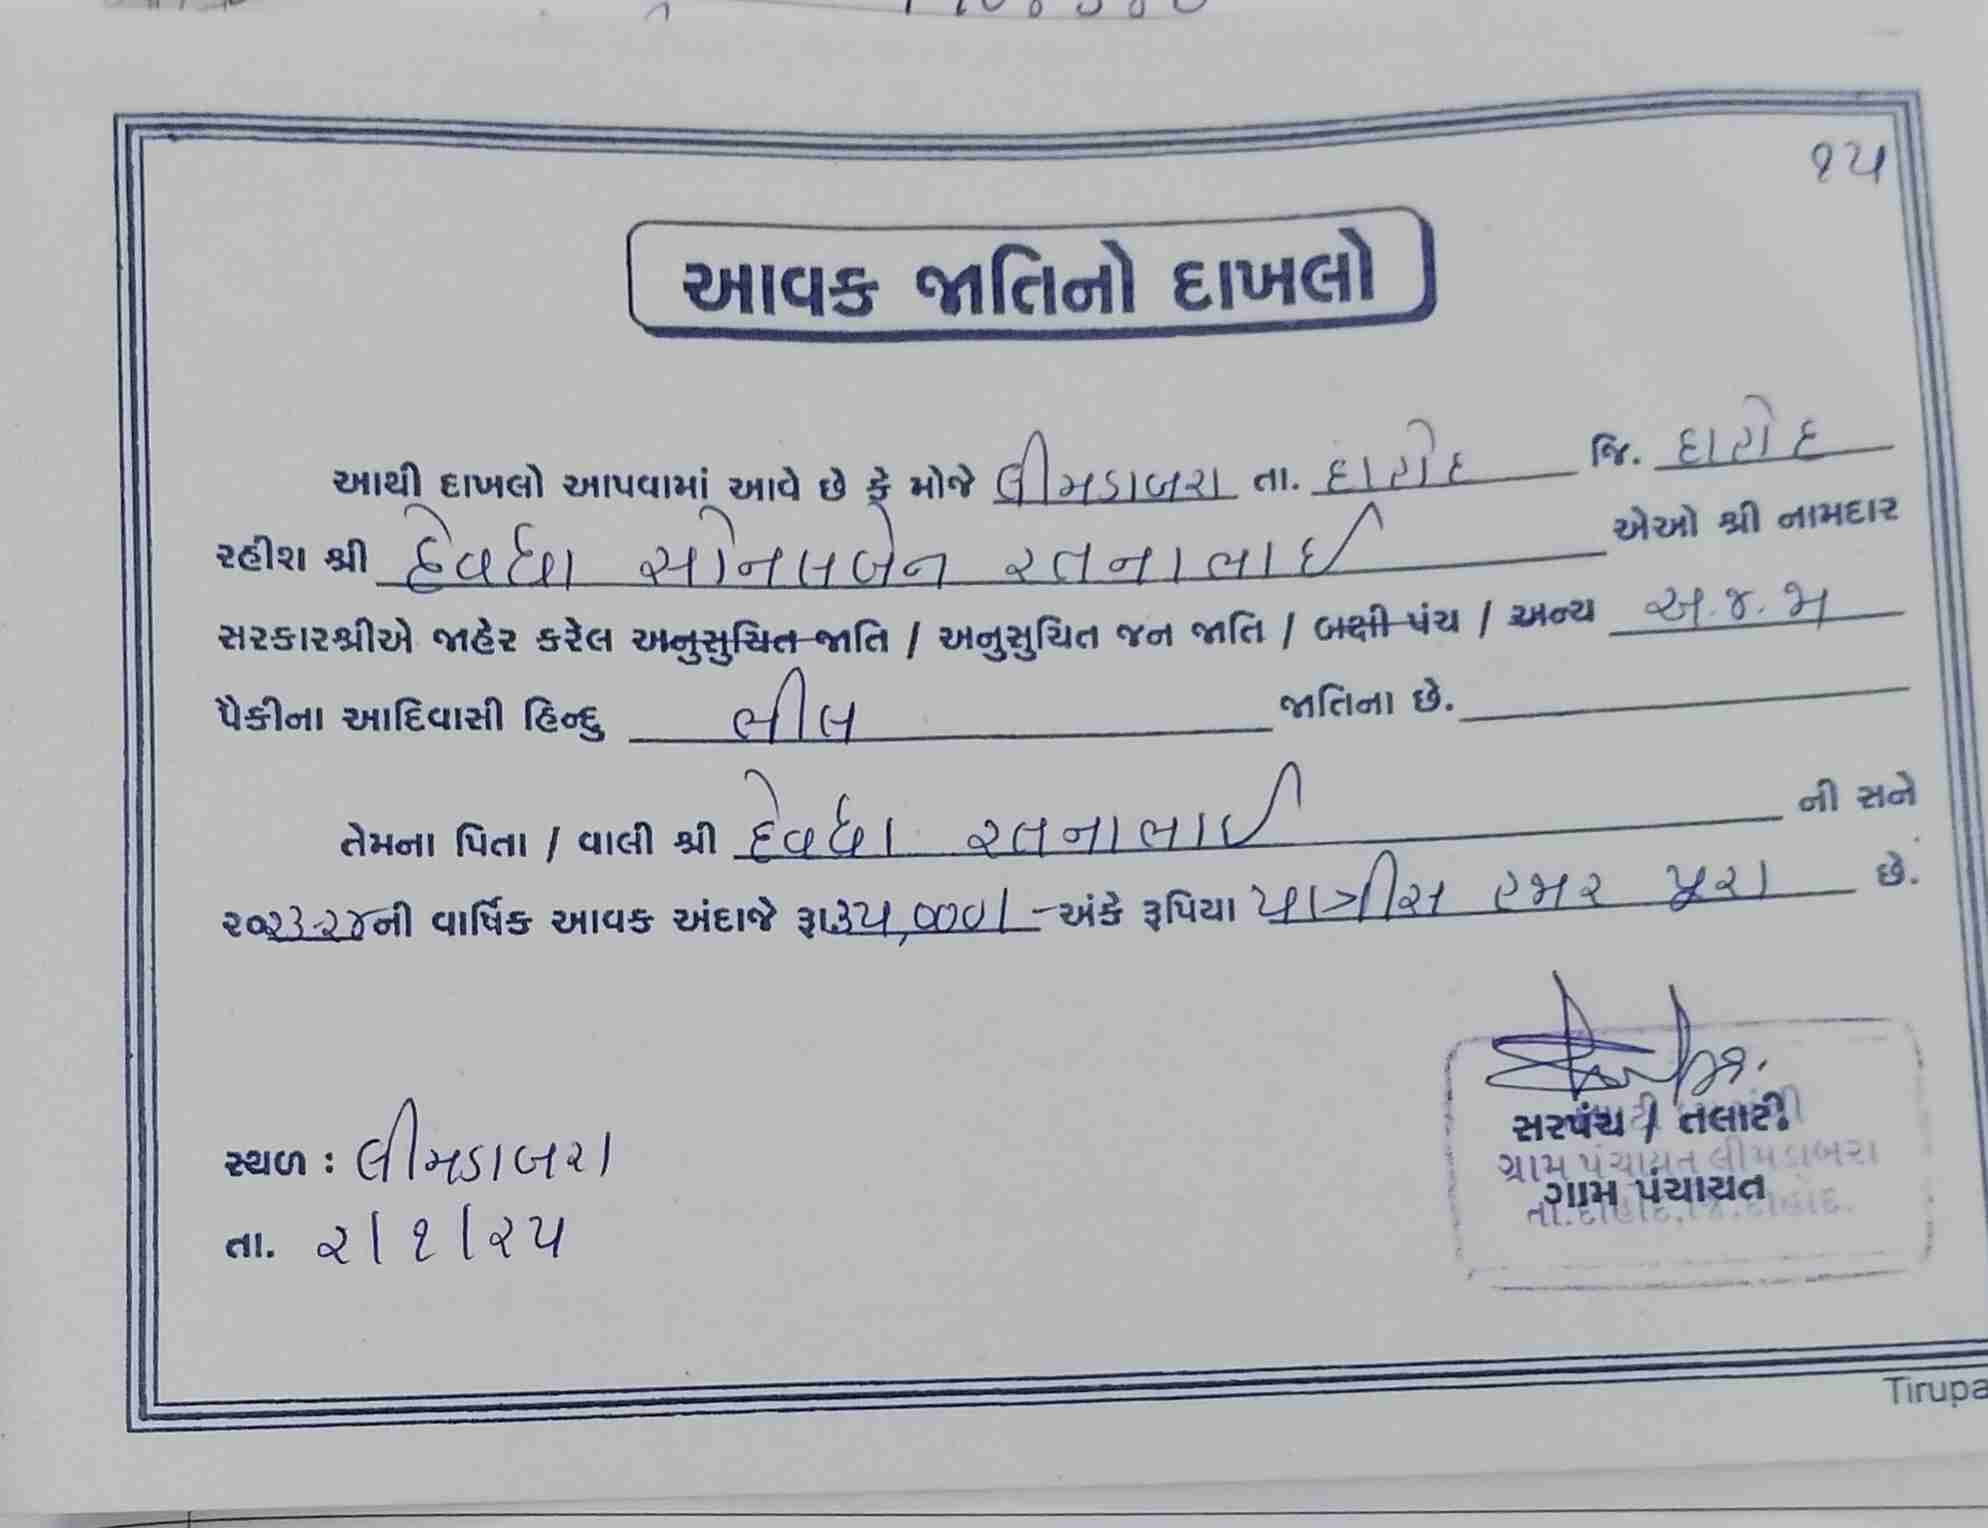 ૧૫
આવક જાતિનો દાખલો
આથી દાખલો આપવામાં આવે છે કે મોજે લીમડાબરા તા. દાહોદ જિ. દાહોદ
રહીશ શ્રી દેવધા સોનલબેન રતનાભાઈ એઓ શ્રી નામદાર
સરકારશ્રીએ જાહેર કરેલ અનુસુચિત જાતિ / અનુસુચિત જન જાતિ / બક્ષી પંચ / અન્ય અ.જ.જા
પૈકીના આદિવાસી હિન્દુ ભીલ જાતિના છે.
તેમના પિતા / વાલી શ્રી દેવધા રતનાભાઈ ની સને
૨૦૨૩-૨૪ની વાર્ષિક આવક અંદાજે રૂા૩૫,૦૦૦/- અંકે રૂપિયા પાત્રીસ હજાર પુરા છે.
સ્થળ : લીમડાબરા
તા. ૨/૧/૨૫
સરપંચ / તલાટી
ગ્રામ પંચાયત લીમડાબરા
ગ્રામ પંચાયત
તા.દાહોદ,જિ.દાહોદ.
Tirupa